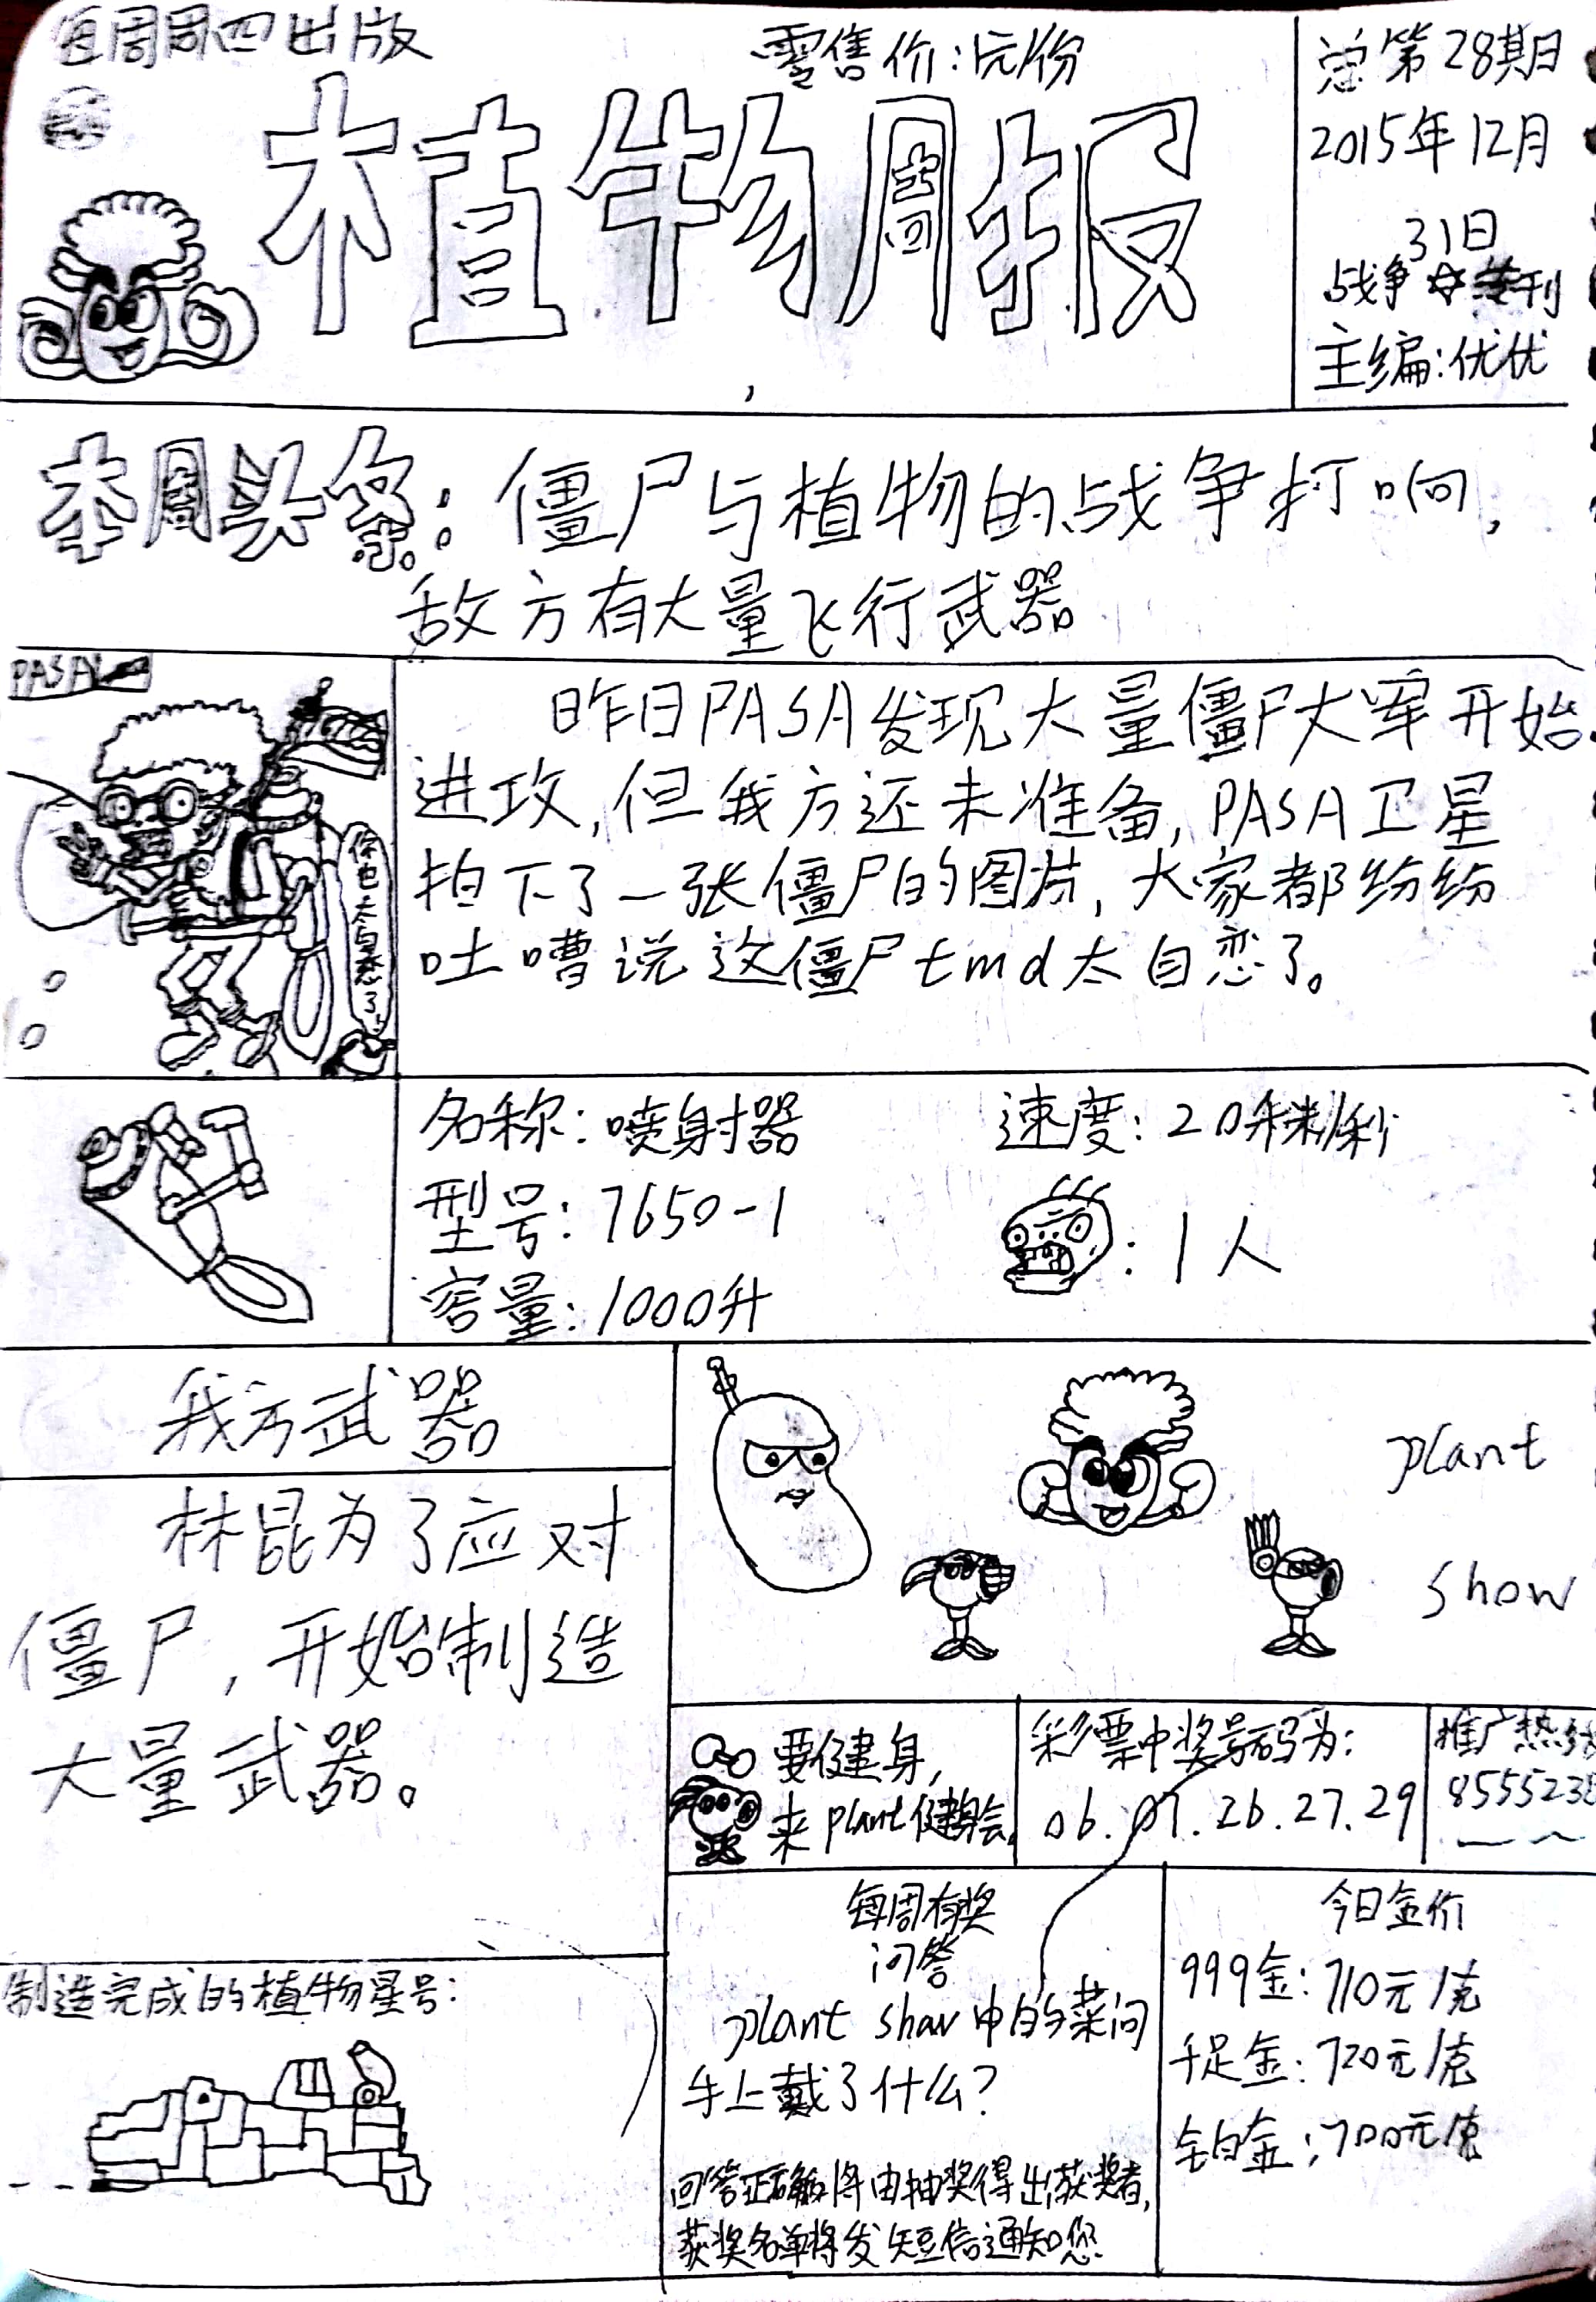 每周周四出版
零售价:1元/份
总第28期日
2015年12月
31日
战争 专刊
主编:优优
植物周报
本周头条:僵尸与植物的战争打响,
敌方有大量飞行武器
PASA
你也太自恋了
昨日PASA发现大量僵尸大军开始
进攻,但我方还未准备,PASA卫星
拍下了一张僵尸的图片,大家都纷纷
吐嘈说这僵尸tmd太自恋了。
名称:喷射器
速度:20千米/秒
型号:7650-1
:1人
容量:1000升
我方武器
林昆为了应对
僵尸,开始制造
大量武器。
制造完成的植物星号:
plant
show
要健身,
来plant健身会。
彩票中奖号码为:
06.07.26.27.29
推广热线
8555238
每周有奖
问答
plant show中的菜问
手上戴了什么?
回答正确将由抽奖得出获奖者,
获奖名单将发短信通知您.
今日金价
999金:710元/克
千足金:720元/克
铂金:700元/克